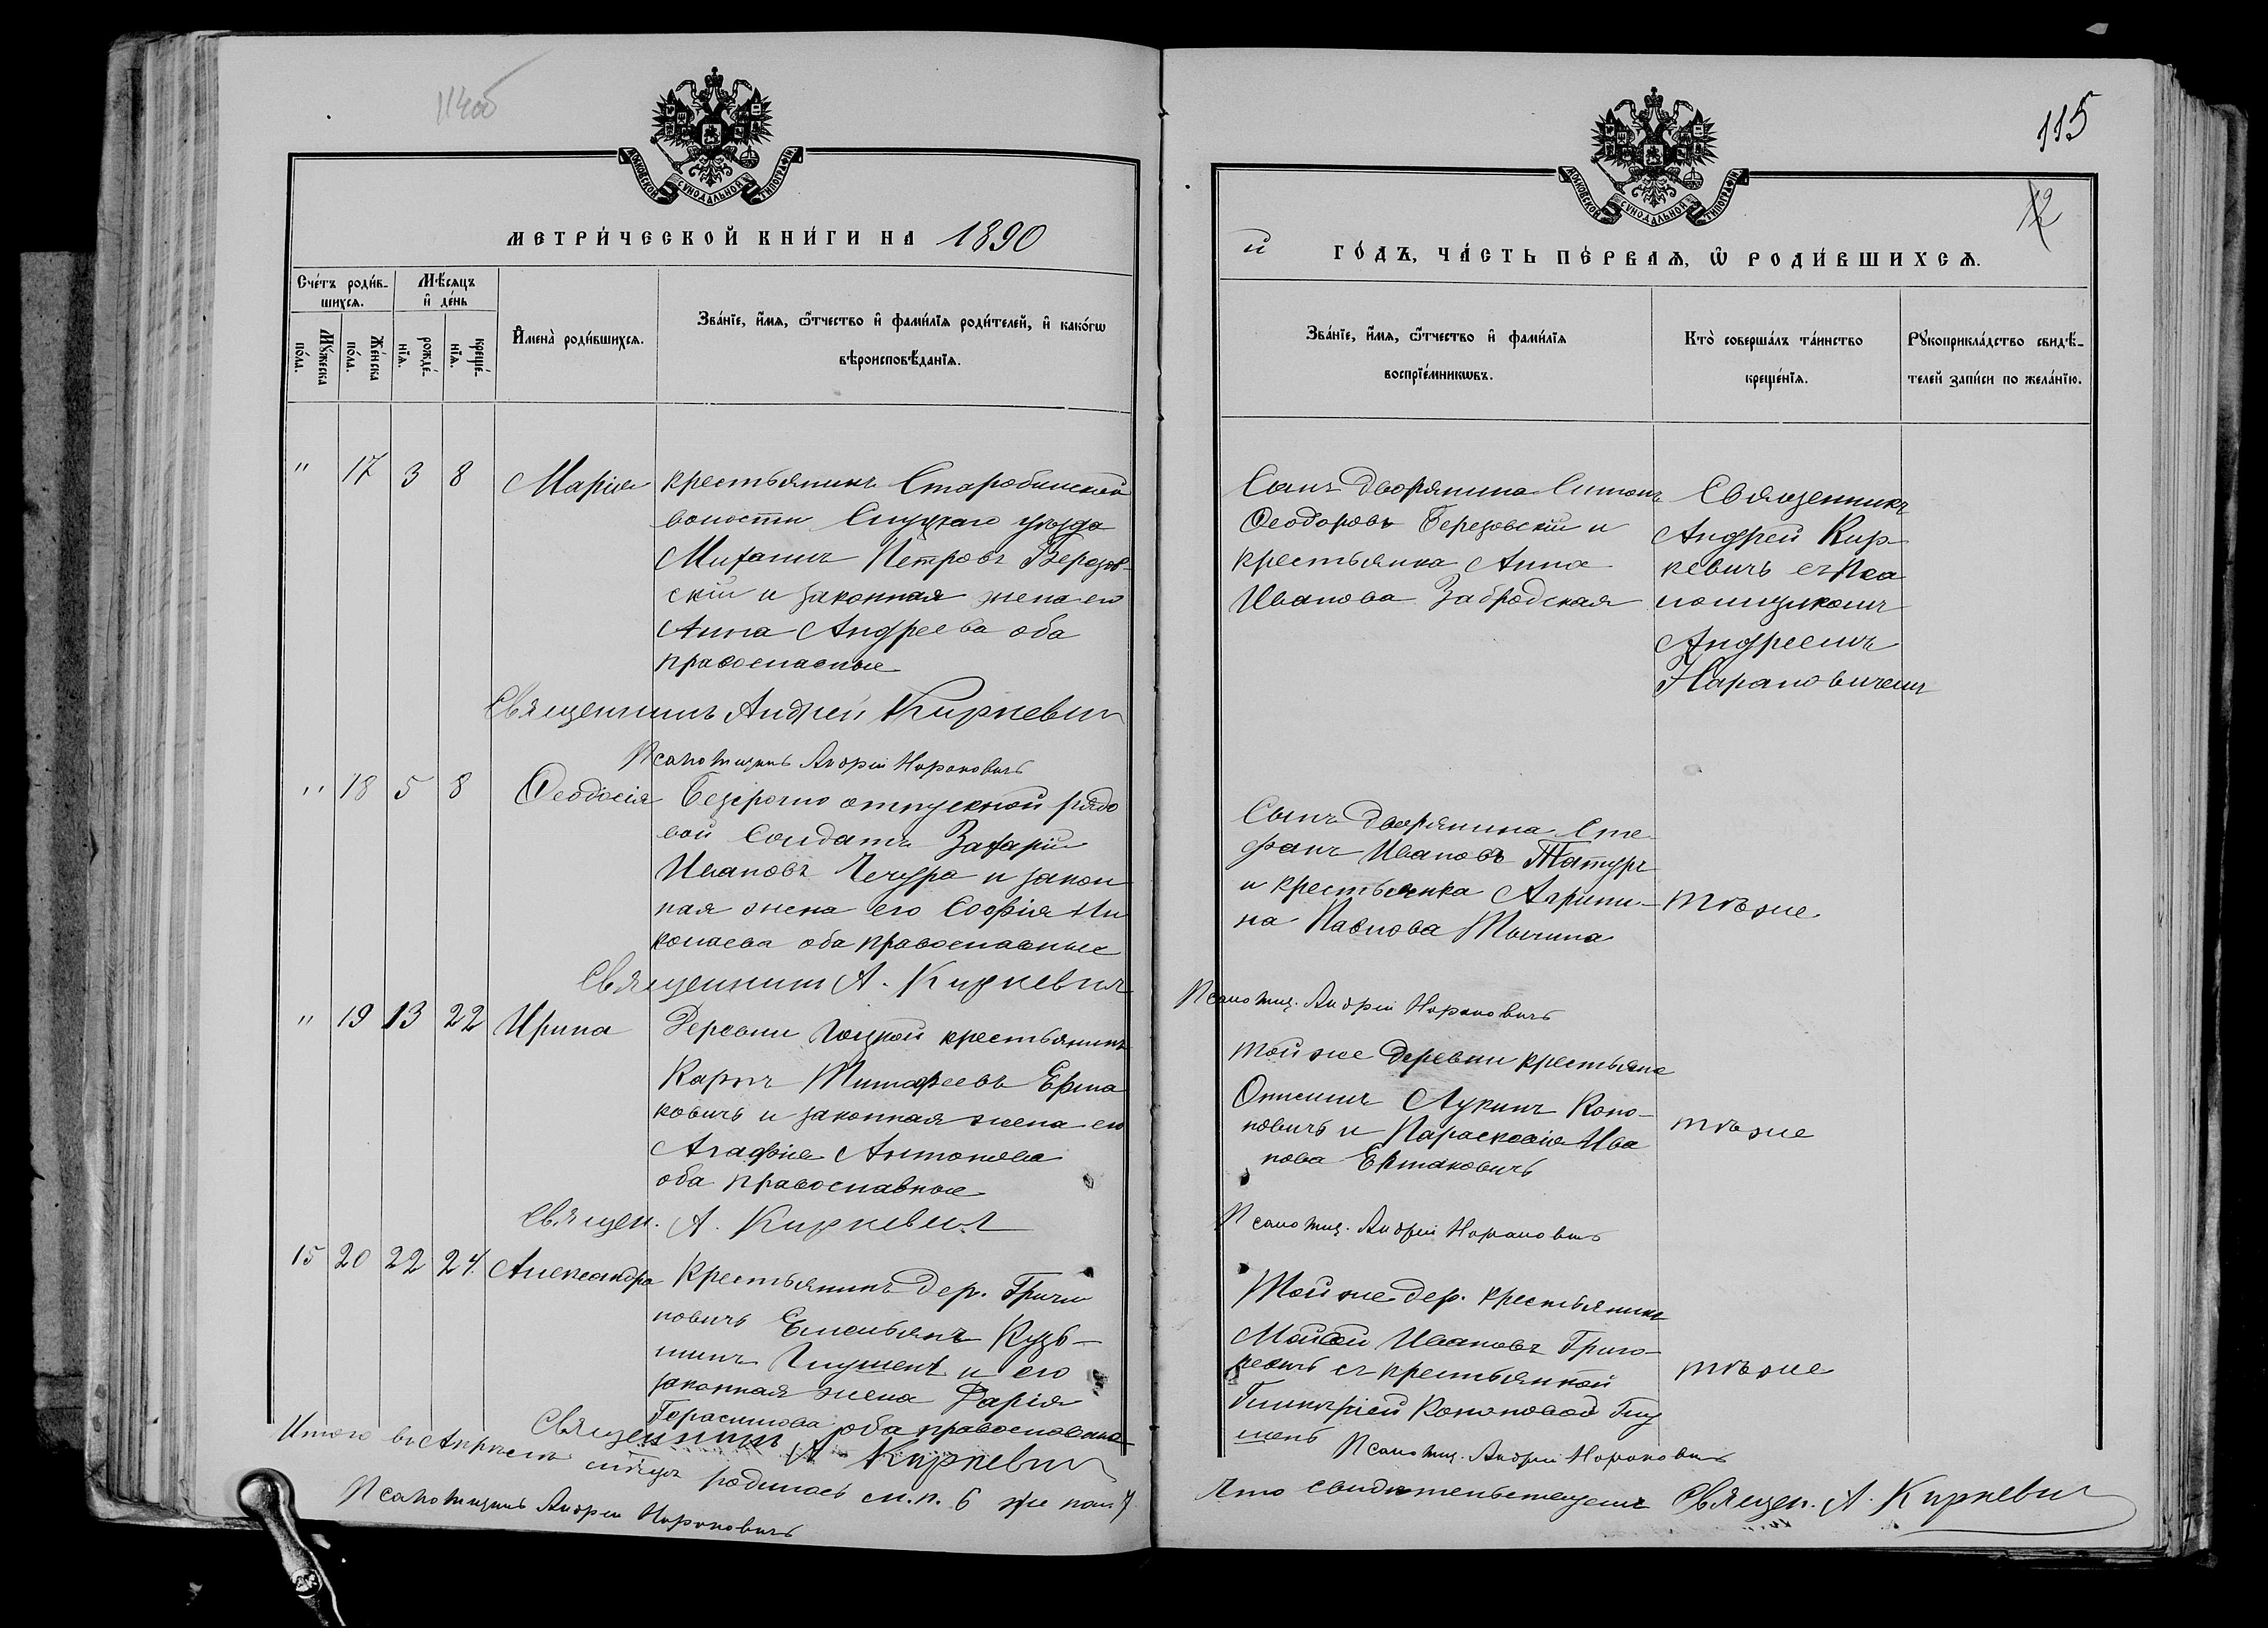 114об
МОСКОВСКОЙ СѴНОДАЛЬНОЙ ТИПОГРАФІИ
МЕТРИ́ЧЕСКОЙ КНИ́ГИ НА 1890
Сче́тъ роди́в-
шихсѧ.
Мѣ́сѧцъ
и҆ де́нь
И҆мена̀ роди́вшихсѧ.
Зва́нїе, и҆́мѧ, ѻ҆́тчество и҆ фами́лїѧ роди́телей, и҆ како́гѡ
вѣроисповѣ́данїѧ.
Мꙋ́жеска
по́ла.
Же́нска
по́ла.
рожде́-
нїѧ.
креще́-
нїѧ.
" 17 3 8 Марія крестьянинъ Старобинской
волости Слуцкаго уѣзда
Михаилъ Петровъ Березов-
скій и законная жена его
Анна Андреева оба
православные
Священникъ Андрей Киркевич
Псаломщикъ Андрей Нарановичъ
" 18 5 8 Ѳеодосія Безсрочно отпускной рядо
вой солдатъ Захарій
Ивановъ Чечура и закон
ная жена его Софія Ни
колаева оба православные
Священникъ А. Киркевич
" 19 13 22 Ирина Деревни крестьянинъ
Карпъ Тимофеевъ Ерма
ковичъ и законная жена его
Агафія Антонова
оба православные
Священ. А. Киркевич
15 20 22 24. Александра Крестьянинъ дер. Гричи
новичъ Емельянъ Кузь-
минъ Глушень и его
законная жена Дарія
Герасимова оба православные
Священникъ А. Киркевич
Итого въ Апрѣлѣ мѣсяцѣ родилось м.п. 6 жен пол. 7
Псаломщикъ Андрей Нарановичъ
115
12
МОСКОВСКОЙ СѴНОДАЛЬНОЙ ТИПОГРАФІИ
й ГО́ДЪ, ЧА́СТЬ ПЕ́РВАѦ, Ѡ҆ РОДИ́ВШИХСѦ.
Зва́нїе, и҆́мѧ, ѻ҆́тчество и҆ фами́лїѧ
воспрїе́мникѡвъ.
Кто̀ соверша́лъ та́инство
креще́нїѧ.
Рꙋкоприкла́дство свидѣ́-
телей за́писи по жела́нїю.
Сынъ дворянина Симонъ
Ѳеодоровъ Березовскій и
крестьянка Анна
Иванова Забродская
Священникъ
Андрей Кир-
кевичъ съ Пса
ломщикомъ
Андреемъ
Нарановичемъ
Сынъ дворянина Сте-
фанъ Ивановъ Татуръ
и крестьянка Агрипи-
на Павлова
тѣ же
Псаломщ. Андрей Нарановичъ
той же деревни крестьяне
Онисимъ Лукинъ Коно-
новичъ и Параскевія Ива
нова Ермаковичъ
тѣ же
Псаломщ. Андрей Нарановичъ
Той же дер. крестьянинъ
Мойсей Ивановъ Григо-
ревичъ съ крестьянкой
Гликерией Кононовой Глу
шень
тѣ же
Псаломщ. Андрей Нарановичъ
Что свидѣтельствуемъ Священ. А. Киркевич